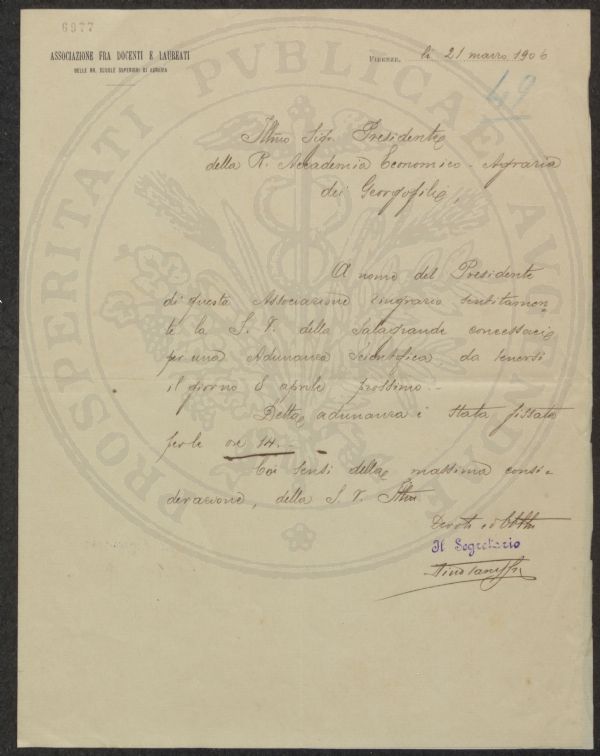 6977
ASSOCIAZIONE FRA DOCENTI E LAUREATI
DELLE RR. SCUOLE SUPERIORI DI AGRARIA
FIRENZE, li 21 marzo 1906
49
Illmo Sig. Presidente
della R. Accademia Economico-Agraria
dei Georgofili,
A nome del Presidente
di questa Associazione ringrazio sentitamen-
te la S. V. della Sala grande concessaci
per una Adunanza Scientifica da tenersi
il giorno 8 aprile prossimo.-
Detta adunanza è stata fissata
per le ore 14.-
Coi sensi della massima consi-
derazione, della S. V. Illma
Il Segretario
PROSPERITATI PVBLICAE AVGENDAE